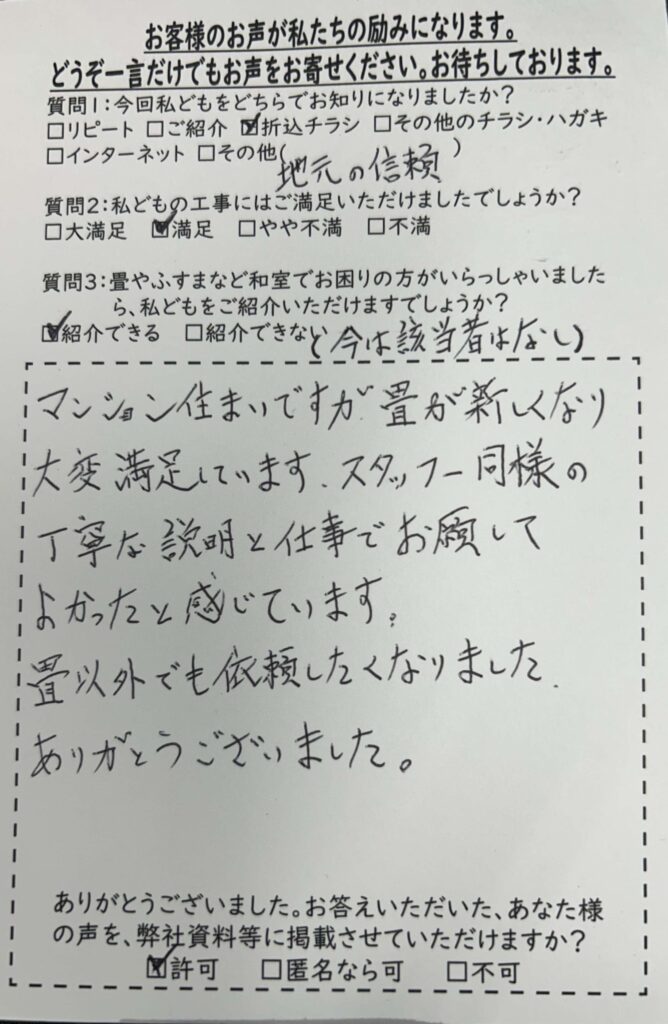 お客様のお声が私たちの励みになります。
どうぞ一言だけでもお声をお寄せください。お待ちしております。
質問1：今回私どもをどちらでお知りになりましたか？
□リピート □ご紹介 ☑折込チラシ □その他のチラシ・ハガキ
□インターネット □その他( 地元の信頼 )
質問2：私どもの工事にはご満足いただけましたでしょうか？
□大満足 ☑満足 □やや不満 □不満
質問3：畳やふすまなど和室でお困りの方がいらっしゃいました
ら、私どもをご紹介いただけますでしょうか？
☑紹介できる □紹介できない (今は該当者はなし)
マンション住まいですが 畳が新しくなり
大変満足しています。スタッフ一同様の
丁寧な説明と仕事でお願いして
よかったと感じています。
畳以外でも依頼したくなりました。
ありがとうございました。
ありがとうございました。お答えいただいた、あなた様
の声を、弊社資料等に掲載させていただけますか？
☑許可 □匿名なら可 □不可